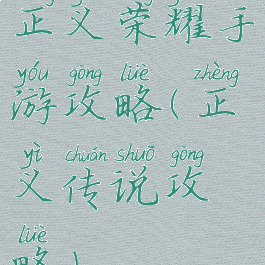 正义荣耀手
yóu gōng lüè zhèng
游攻略(正
yì chuán shuō gōng
义传说攻
lüè
略)